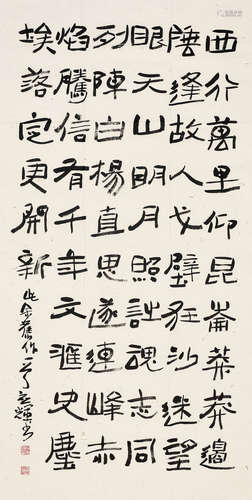 西行萬里仰昆崙莽莽邊
陲逢故人戈壁狂沙迷望
眼天山明月照詩魂志同
列陣白楊直思逐連峰赤
焰騰信有千年文滙史塵
埃落定更開新 此余舊作一首